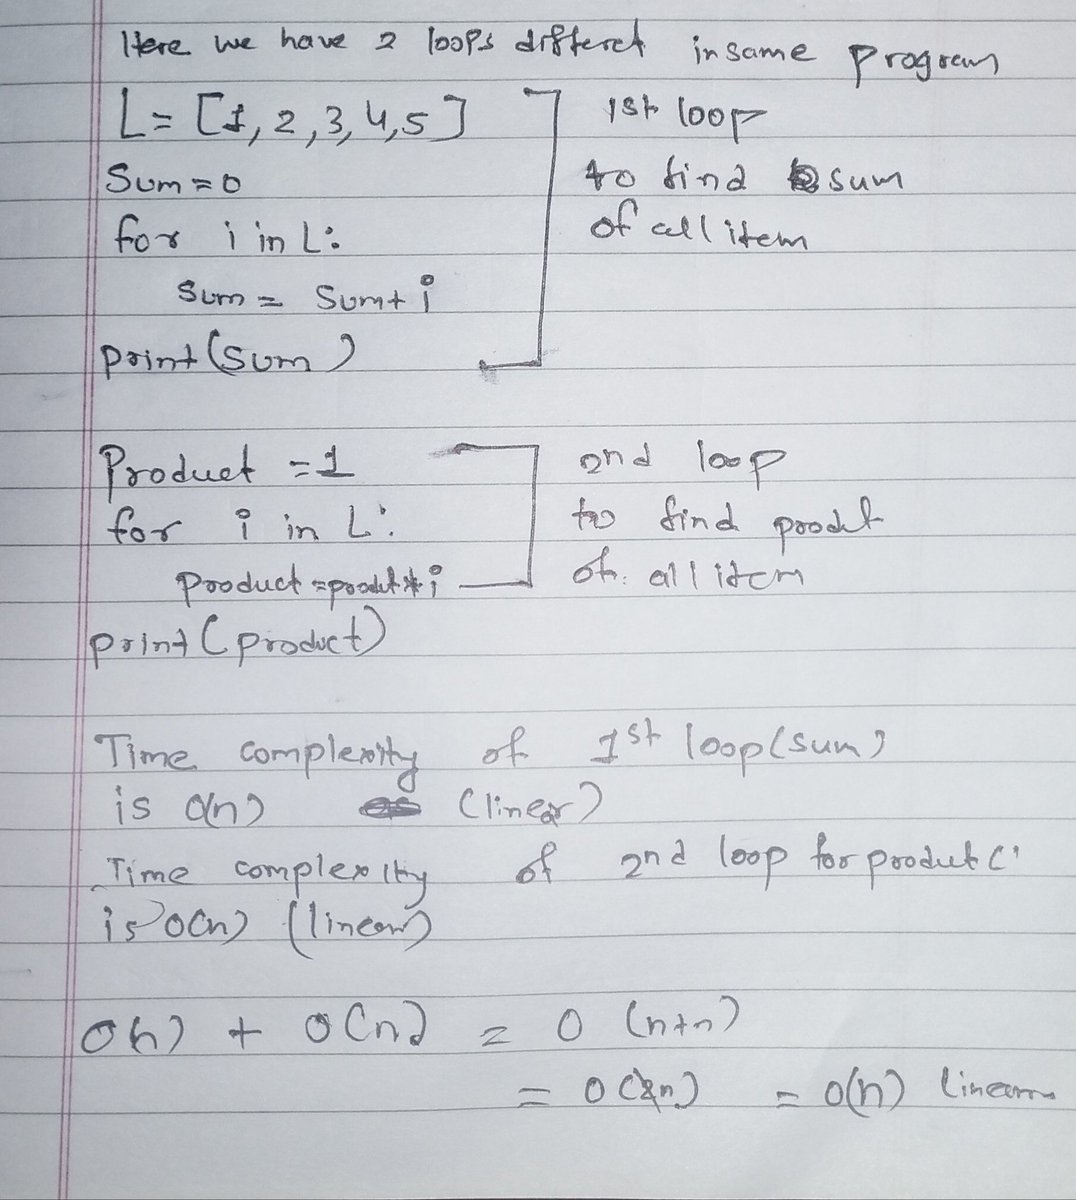 Here we have 2 loops differet in same program
L = [1, 2, 3, 4, 5] 1st loop
Sum = 0 to find sum
for i in L: of all item
sum = Sum + i
print (sum)
Product = 1 2nd loop
for i in L: to find prodct
product = prodct * i of all item
print (product)
Time complexity of 1st loop (sum)
is O(n) (linear)
Time complexity of 2nd loop for product
is O(n) (linear)
O(n) + O(n) = O (n+n)
= O (2n) = O(n) linear